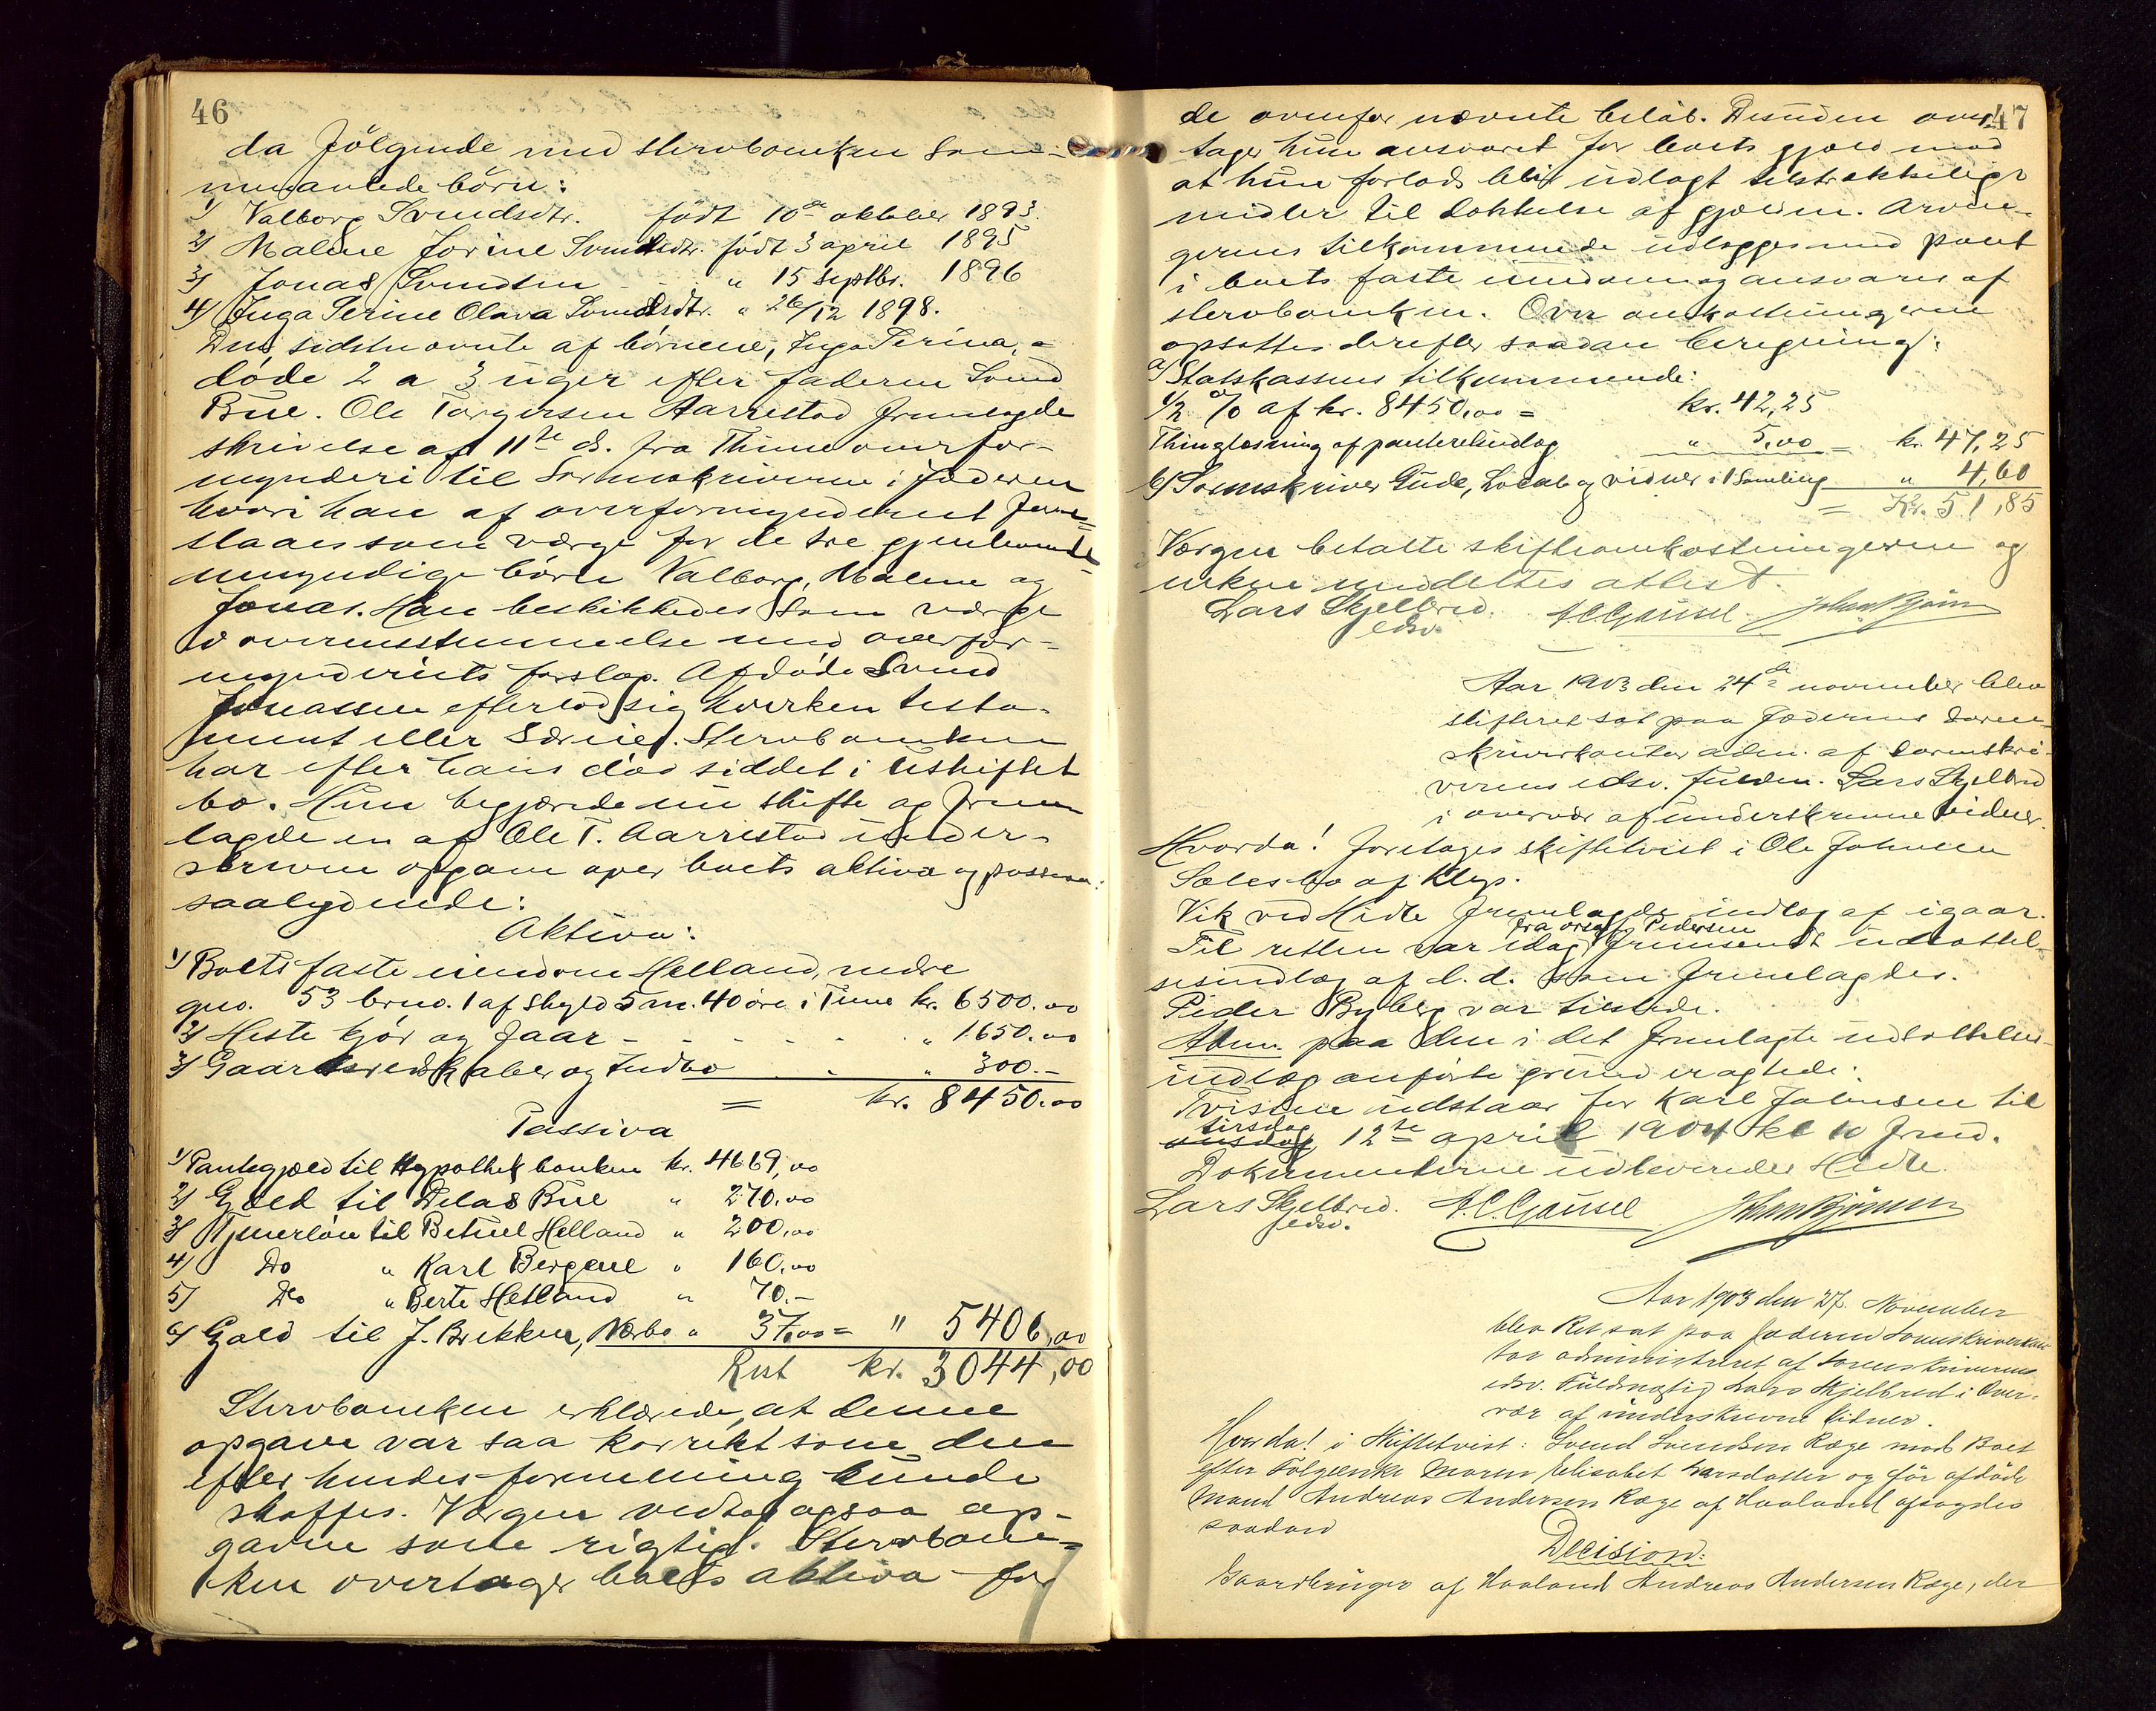 46
da følgende med stervboenken sam-
menavlede børn:
1) Valborg Svendsdtr. født 10de oktober 1893.
2) Malene Jorine Svendsdtr. født 3 april 1895
3) Jonas Svendsen - - " 15 septbr. 1896
4) Inga Serine Olava Svendsdtr. " 26/12 1898.
Den sidstnævnte af børnene, Inga Serina,
døde 2 a 3 uger efter faderen Svend
Bue. Ole Torgersen Aarrestad fremlagde
skrivelse af 11te ds. fra Thime overfor-
mynderi til Sorenskriveren i Jæderen
hvori han af overformynderiet fore-
slaaes som værge for de tre gjenlevende
umyndige børn Valborg, Malene og
Jonas. Han beskikkedes som værge
i overensstemmelse med overfor-
mynderiets forslag. Afdøde Svend
Jonassen efterlod sig hverken testa-
ment eller Særeie. Stervboenken
har efter hans død siddet i uskiftet
bo. Hun begjærede nu skifte og frem
lagde en af Ole T. Aarrestad under-
skreven opgave over boets aktiva og passiva:
saalydende:
Aktiva:
1) Boets faste eiendom Helland, nedre
gno. 53 brno. 1 af skyld 5 m. 40 øre i Time kr. 6500.00
2) Heste kjør og faar - - - - - " 1650.00
3) Gaardsredskaber og Indbo - " 300.-
= kr. 8450.00
Passiva
1) Pantegjæld til Hypothekbanken kr. 4669,00
2) Gjæld til Delas Bue " 270.00
3) Tjenerløn til Betuel Helland " 200,00
4) Do " Karl Bergene " 160.00
5) Do " Berte Helland " 70.-
6) Gjæld til J. Brekken, Nærbø " 37,00 = " 5406,00
Rest kr. 3044,00
Stervboenken erklærede, at denne
opgave var saa korrekt som den
efter hendes formening kunde
skaffes. Værgen vedtog ogsaa op-
gaven som rigtig. Stervboen-
ken overtager boets aktiva for
47
de ovenfor nævnte beløb. Desuden over
tager hun ansvaret for boets gjæld mod
at hun forlods blir udlagt tilstrækkelige
midler til dækkelse af gjælden. Arvin-
gernes tilkommende udlægges med pant
i boets faste eiendom og ansvares af
stervboenken. Over omkostningerne
opsattes derefter saadan beregning:
a) Statskassens tilkommende:
1/2 % af kr. 8450,00 = kr. 42,25
Thinglæsning af panteretudlæg " 5,00 = kr. 47,25
b) Sorenskriver Gude, Lokale og vidner i 1 Samling " 4,60
= Kr. 51,85
Værgen betalte skifteomkostningerne og
enken meddeltes attest.
Lars Skjelbred. A.C. Gausel John Bjønn
edsv.
Aar 1903 den 24de november blev
skifteret sat paa Jæderens Soren-
skriverkontor adm. af sorenskri-
verens edsv. fuldm. Lars Skjelbred
i overvær af underskrevne vidner.
Hvorda! foretages skiftetvist i Ole Johnsen
Sælesbo af Klep.
Vik ved Hidle fremlagde indlæg af igaar.
fra ovsagf. Pedersen
Til retten var idag fremsendt udsættel-
sesindlæg af d.d. som fremlagdes.
Peder Byberg var tilstede.
Adm. paa den i det fremlagte udsættelses-
indlæg anførte grund eragtede:
Tvisten udstaar for Karl Johnsen til
tirsdag
onsdag 12te april 1904 kl 10 frmd.
Dokumenterne udleveredes Hidle.
Lars Skjelbred. A.C. Gausel John Bjønn
edsv.
Aar 1903 den 27. November
blev Ret sat paa Jæderen Sorenskriverkon
tor administreret af sorenskriverens
edsv. Fuldmægtig Lars Skjelbred i Over-
vær af underskrevne Vidner.
Hvorda! i Skiftetvist: Svend Svendsen Ræge mod Boet
efter Folgeenke Maren Elisabet Larsdatter og før afdøde
Mand Andreas Andersen Ræge af Haaland afsagdes
saadan
Decision:
Gaardbruger af Haaland Andreas Andersen Ræge, der